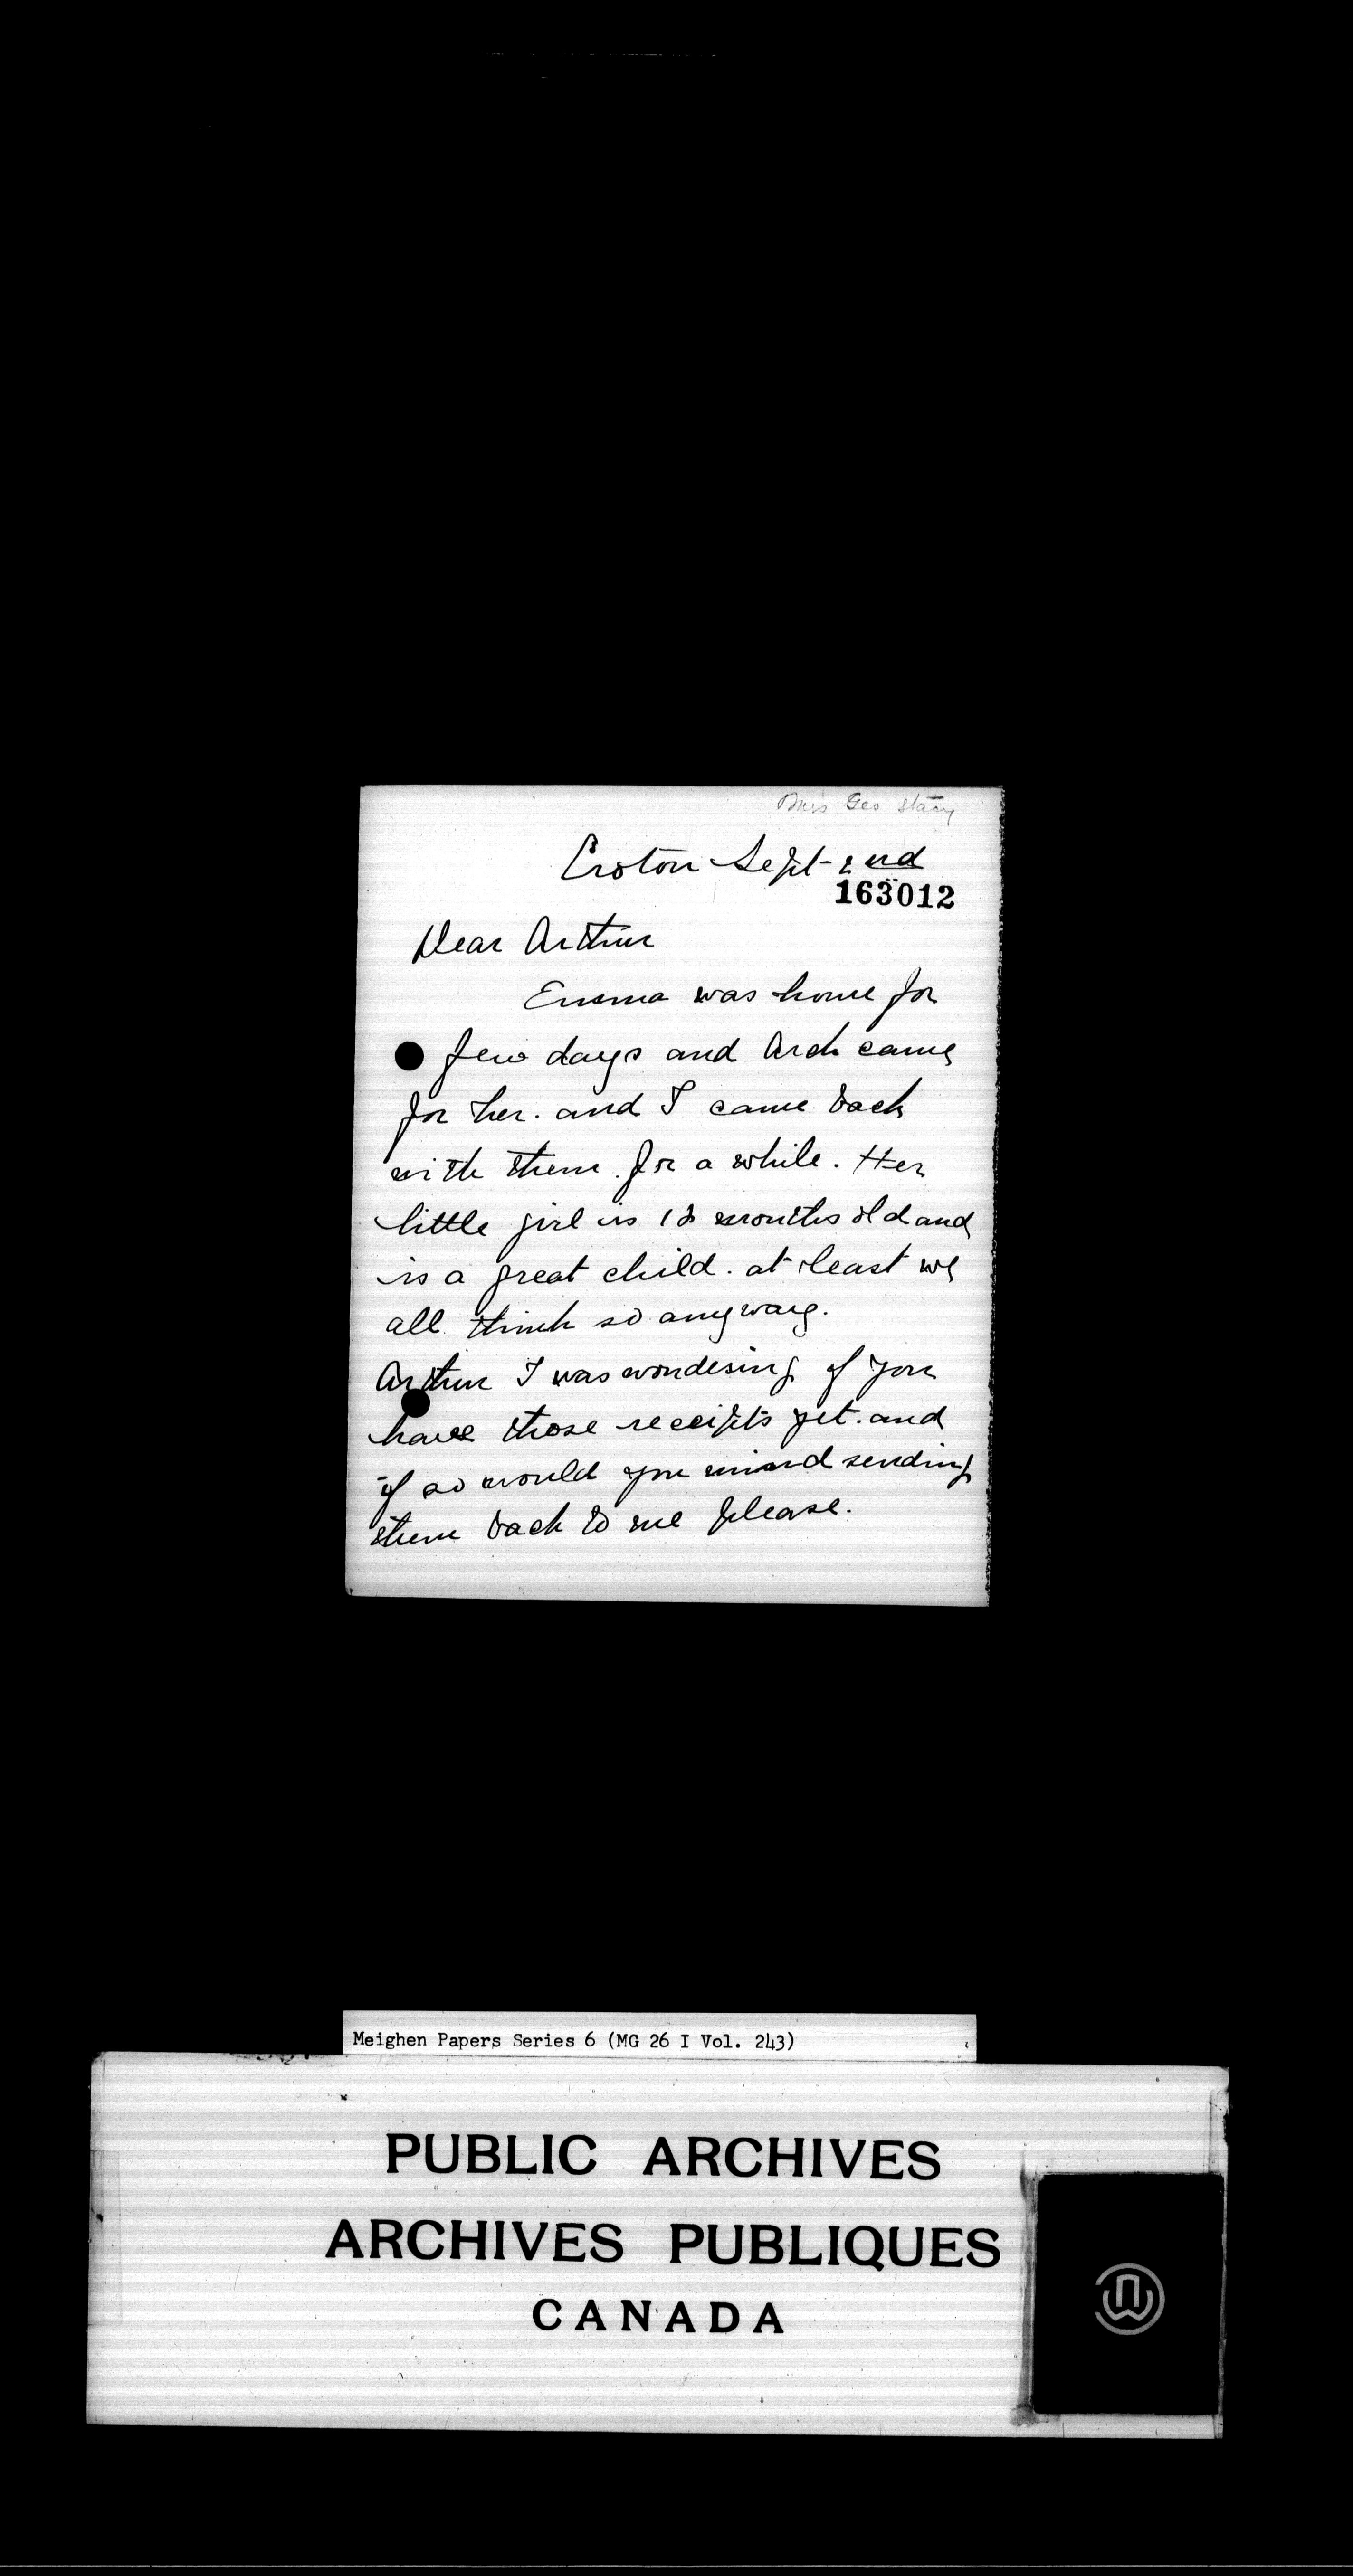 Mrs Geo Stacy
Croton Sept 2nd
163012
Dear Arthur
Emma was home for
few days and Arch came
for her. and I came back
with them for a while. Her
little girl is 18 months old and
is a great child. at least we
all think so anyway.
Arthur I was wondering if you
have those receipts yet. and
if so would you mind sending
them back to me please.
Meighen Papers Series 6 (MG 26 I Vol. 243)
PUBLIC ARCHIVES
ARCHIVES PUBLIQUES
CANADA